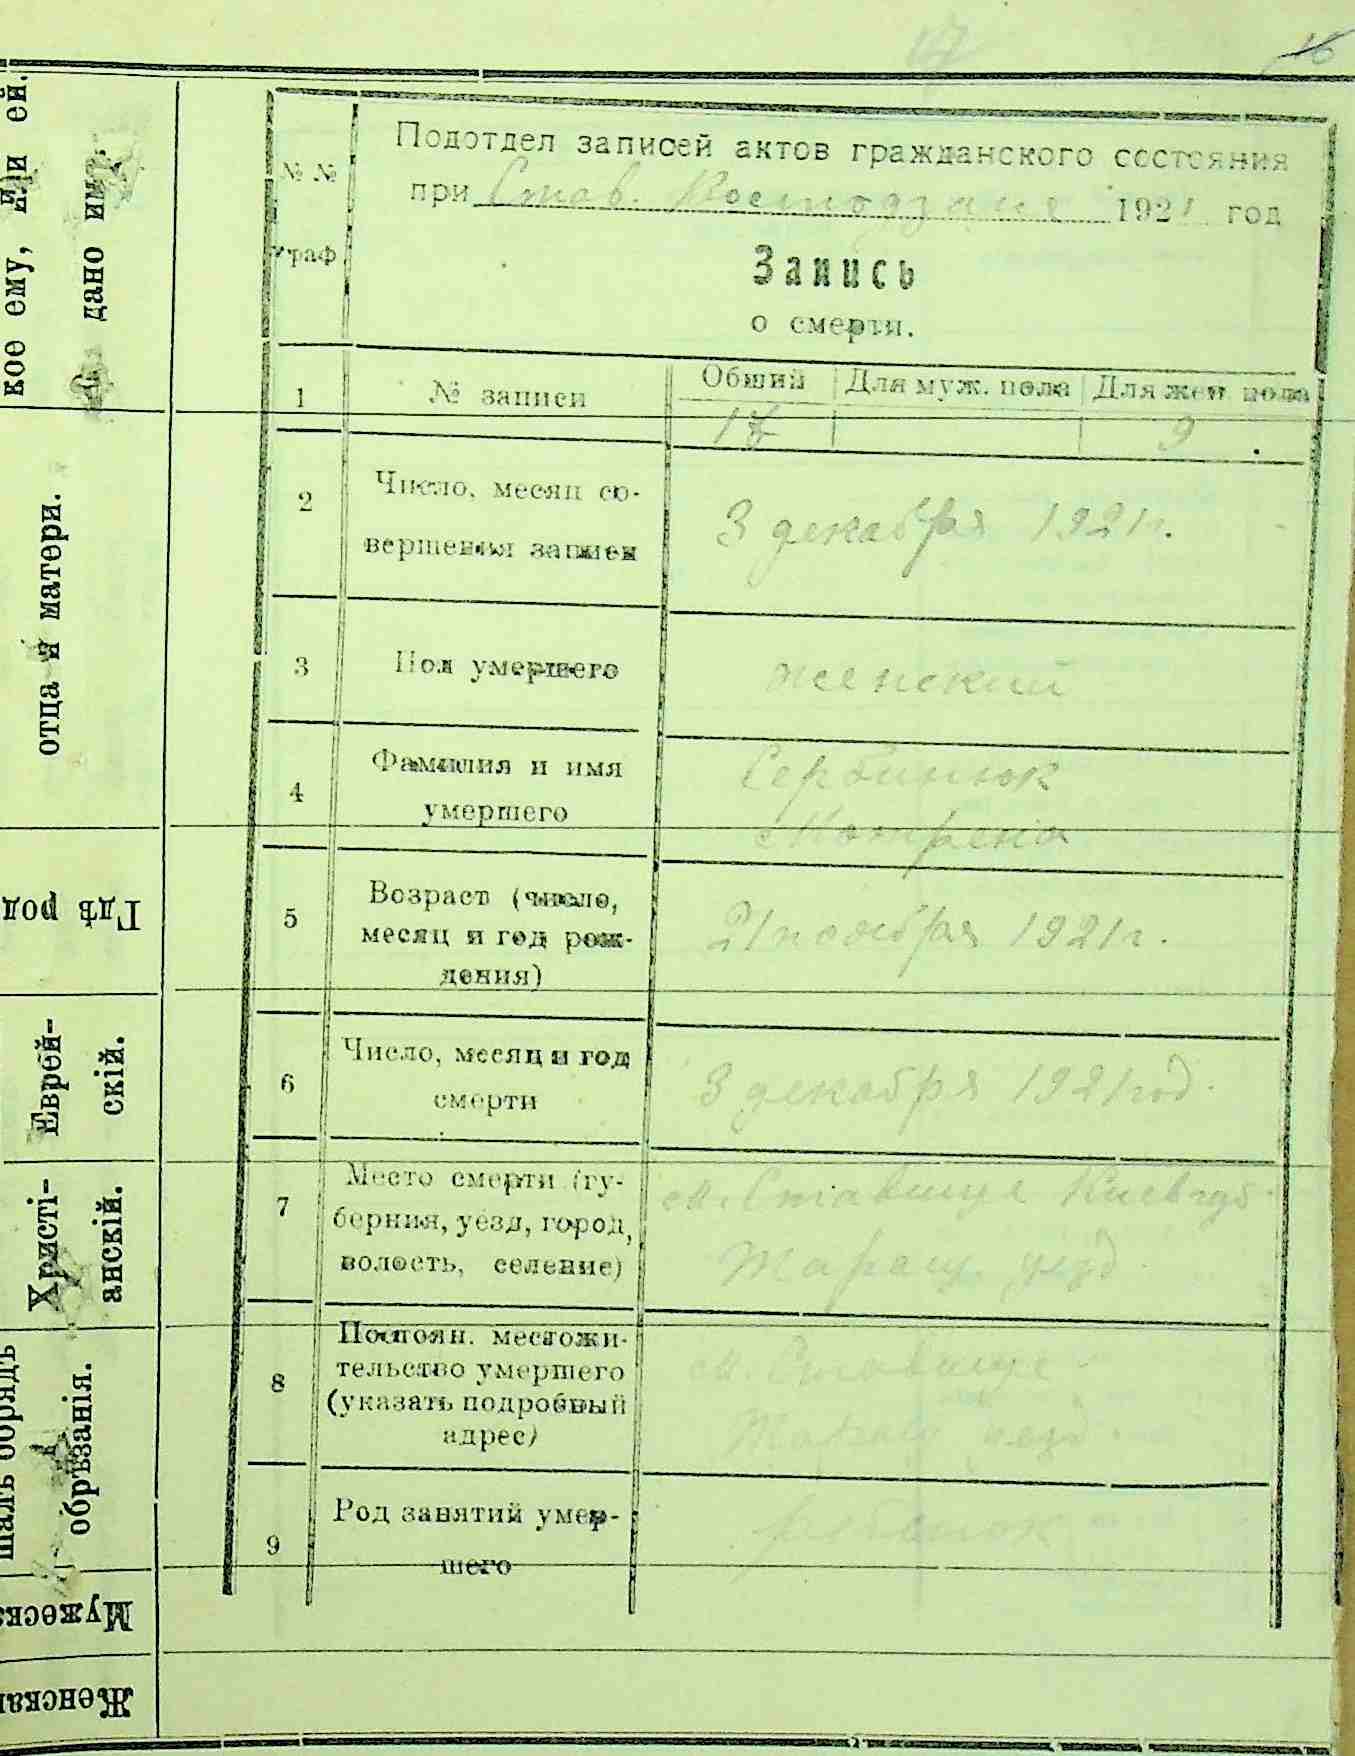 47
16
Подотдел записей актов гражданского состояния
при Став. 1921 год
№ №
граф
Запись
о смерти.
1
№ записи
Общий
Для муж. пола
Для жен. пола
17
9
2
Число, месяц со-
вершения записи
3 декабря 1921 г.
3
Пол умершего
женский
4
Фамилия и имя
умершего
Сербинюк
Мотрена
5
Возраст (число,
месяц и год рож-
дения)
21 ноября 1921 г.
6
Число, месяц и год
смерти
3 декабря 1921 год.
7
Место смерти (гу-
берния, уезд, город,
волость, селение)
м. Ставище Киев губ.
Таращ. уезд
8
Постоян. местожи-
тельство умершего
(указать подробный
адрес)
м. Ставище
Таращ уезд.
9
Род занятий умер-
шего
ребенок
кое ему, или ей.
дано им.
отца и матери.
Гдѣ род
Еврей-
скій.
Христі-
анскій.
шалъ обрядъ
обрѣзанія.
Мужеска
Женская